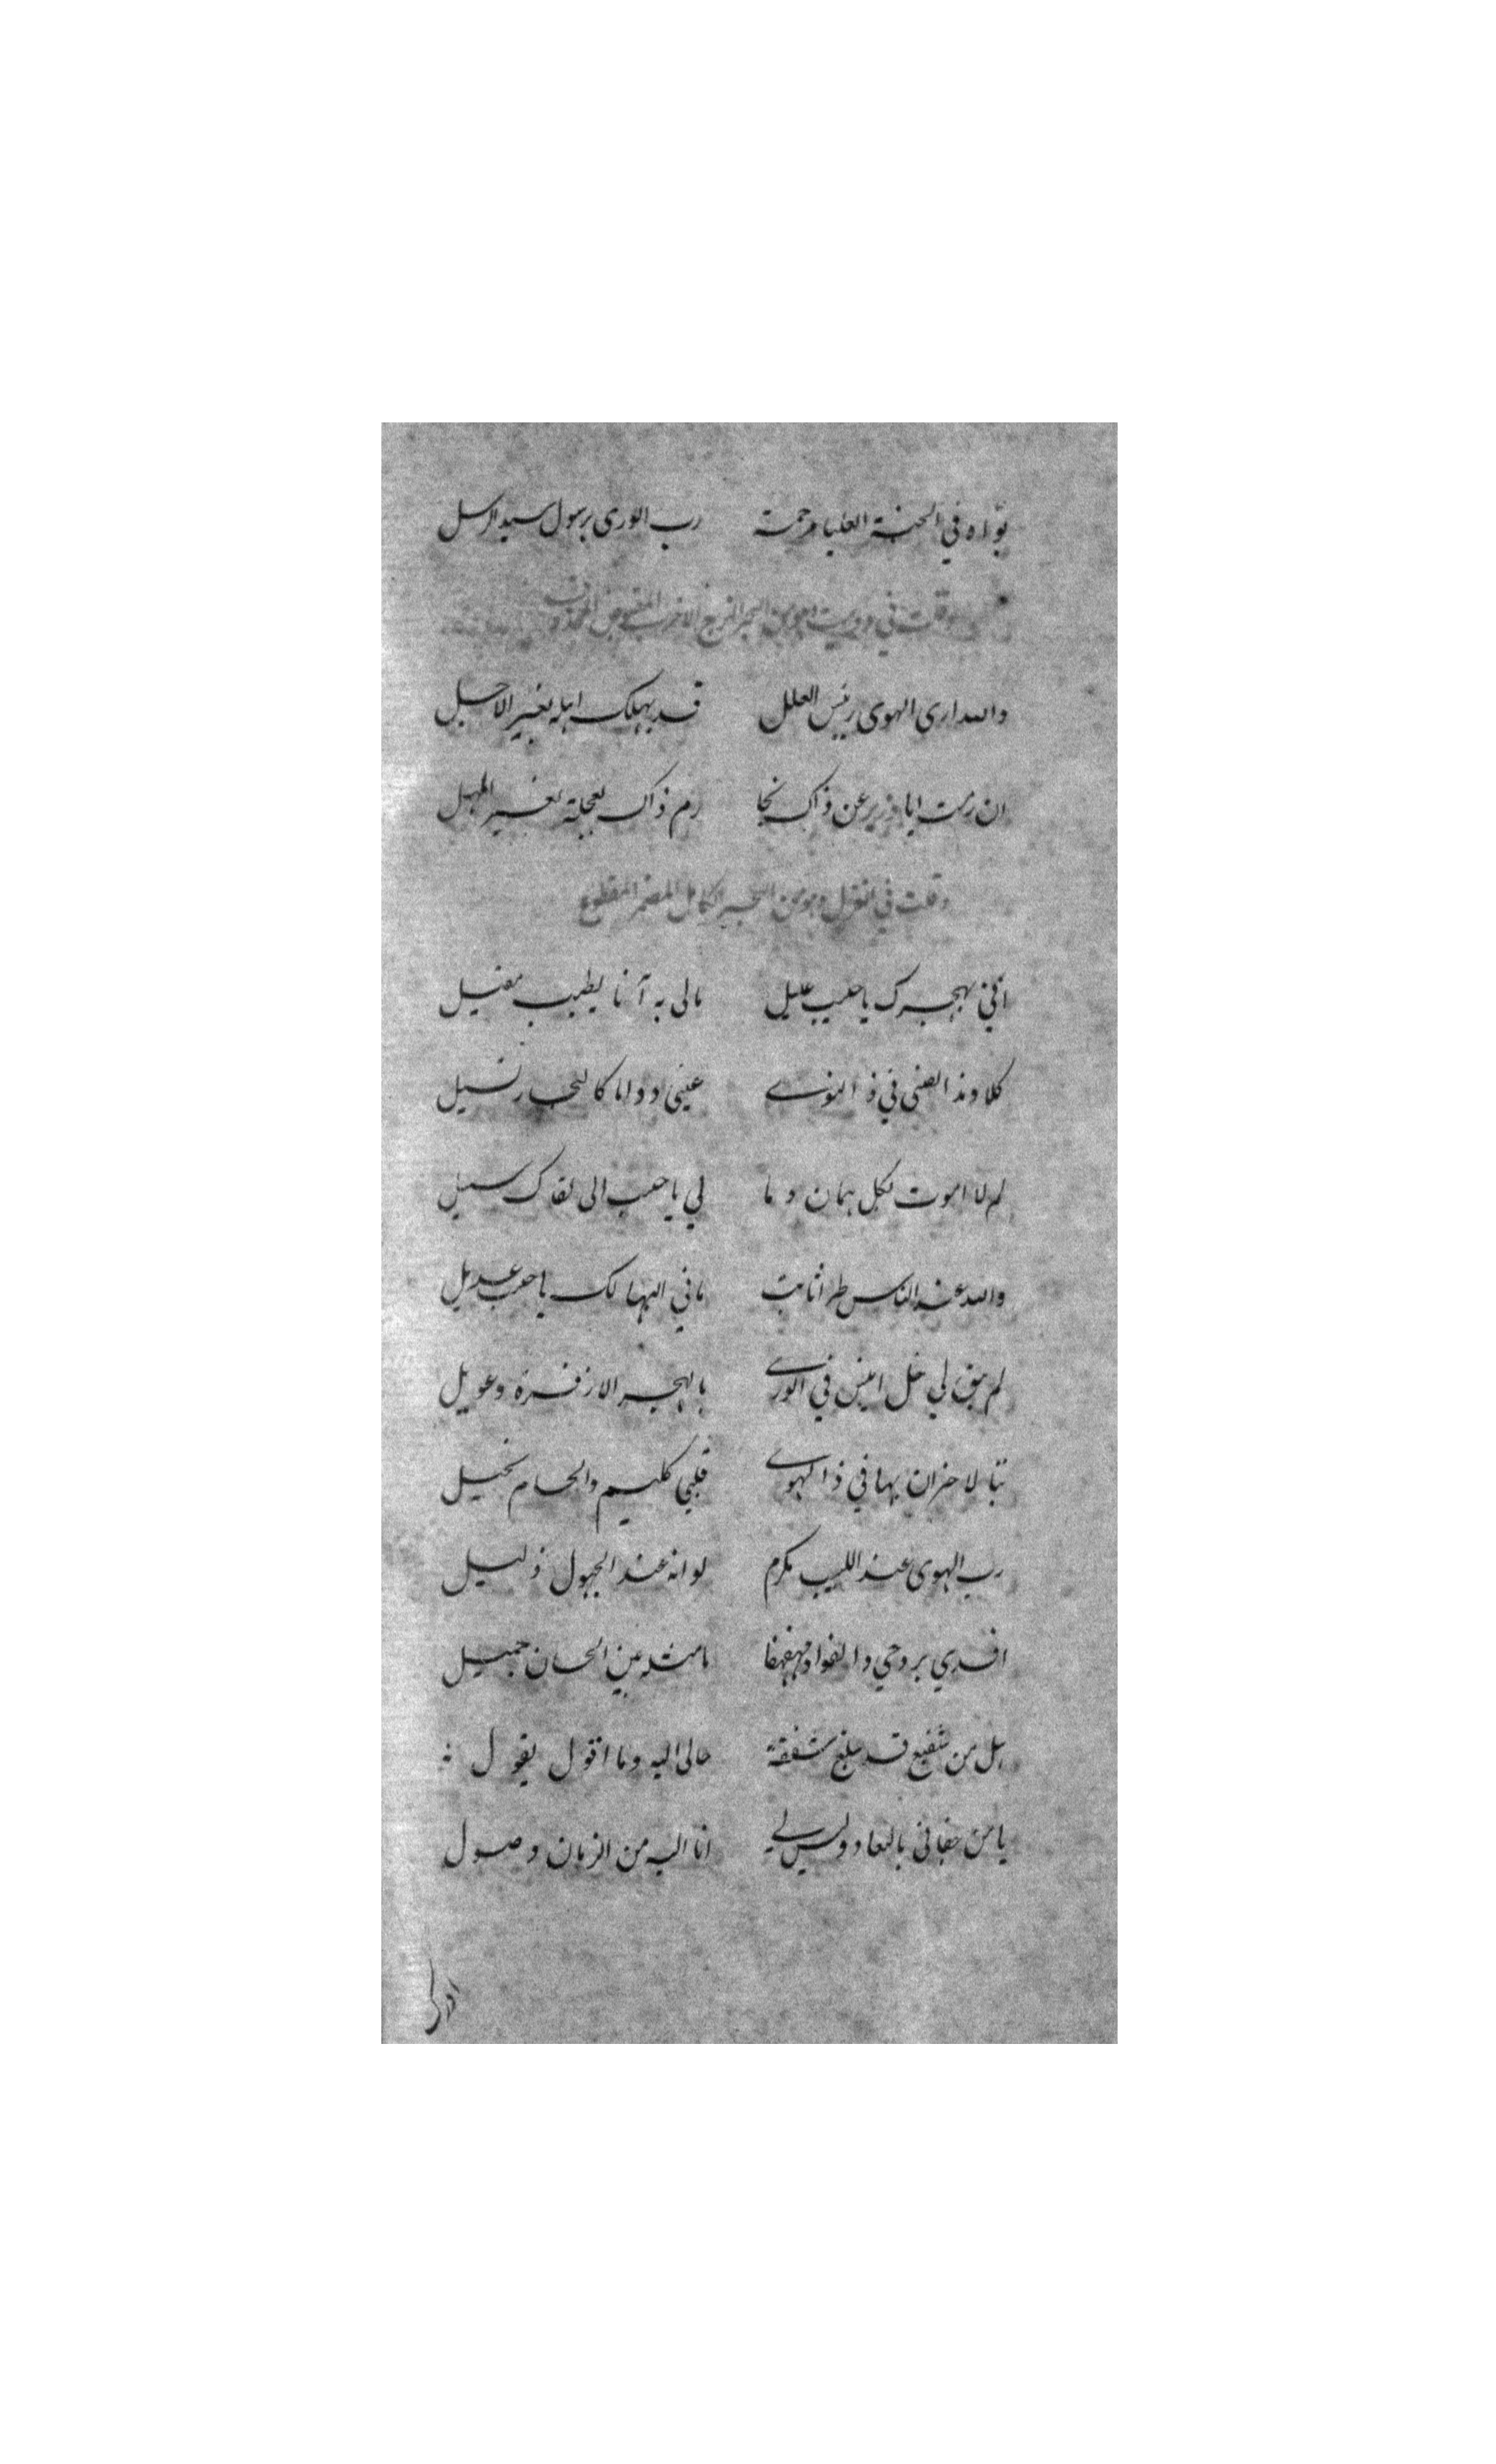 بوّاه في الجنة العليا مرحمة رب الورى برسول سيد الرسل
وقلت في دوبيت وهو من البحر الهزج الاخرب المقبوض المحذوف
والله ارى الهوى رئيس العلل قد يهلك اهله بغير الاجل
ان رمت ايا وزير عن ذاك نجا رم ذاك بعجلة بغير المهل
وقلت في الغزل وهو من البحر الكامل المضمر المقطوع
اني بهجرك يا حبيب عليل مالى به آنا يطيب مقيل
كلا وذا المضنى في ذا النوى عينى دواما كالبحار تسيل
لم لا اموت بكل هجران وما لي يا حبيب الى لقاك سبيل
والله عند الناس طرا ثابت ما في البها لك يا حبيب عديل
لم يبق لي خل انيس في الورى بالهجر الا زفرة وعويل
تبا لاحزان بها في ذا الهوى قلبي كليم والجسم نحيل
رب الهوى عند اللبيب مكرم لو انه عند الجهول ذليل
افدي بروحي والفواد مهفهفا ما مثله بين الحسان جميل
هل من شفيع قد يبلغ شفقة حالى اليه وما اقول يقول
يا من جفانى بالبعاد وليس لي انا اليه من الزمان وصول